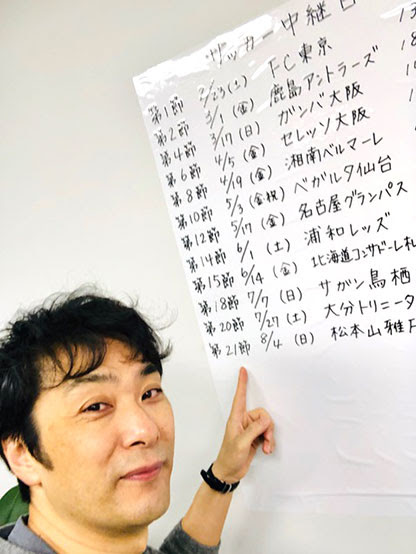 サッカー中継日
第1節 2/23(土) FC東京
第2節 3/1(金) 鹿島アントラーズ
第4節 3/17(日) ガンバ大阪
第6節 4/5(金) セレッソ大阪
第8節 4/19(金) 湘南ベルマーレ
第10節 5/3(金祝) ベガルタ仙台
第12節 5/17(金) 名古屋グランパス
第14節 6/1(土) 浦和レッズ
第15節 6/14(金) 北海道コンサドーレ札
第18節 7/7(日) サガン鳥栖
第20節 7/27(土) 大分トリニータ
第21節 8/4(日) 松本山雅F